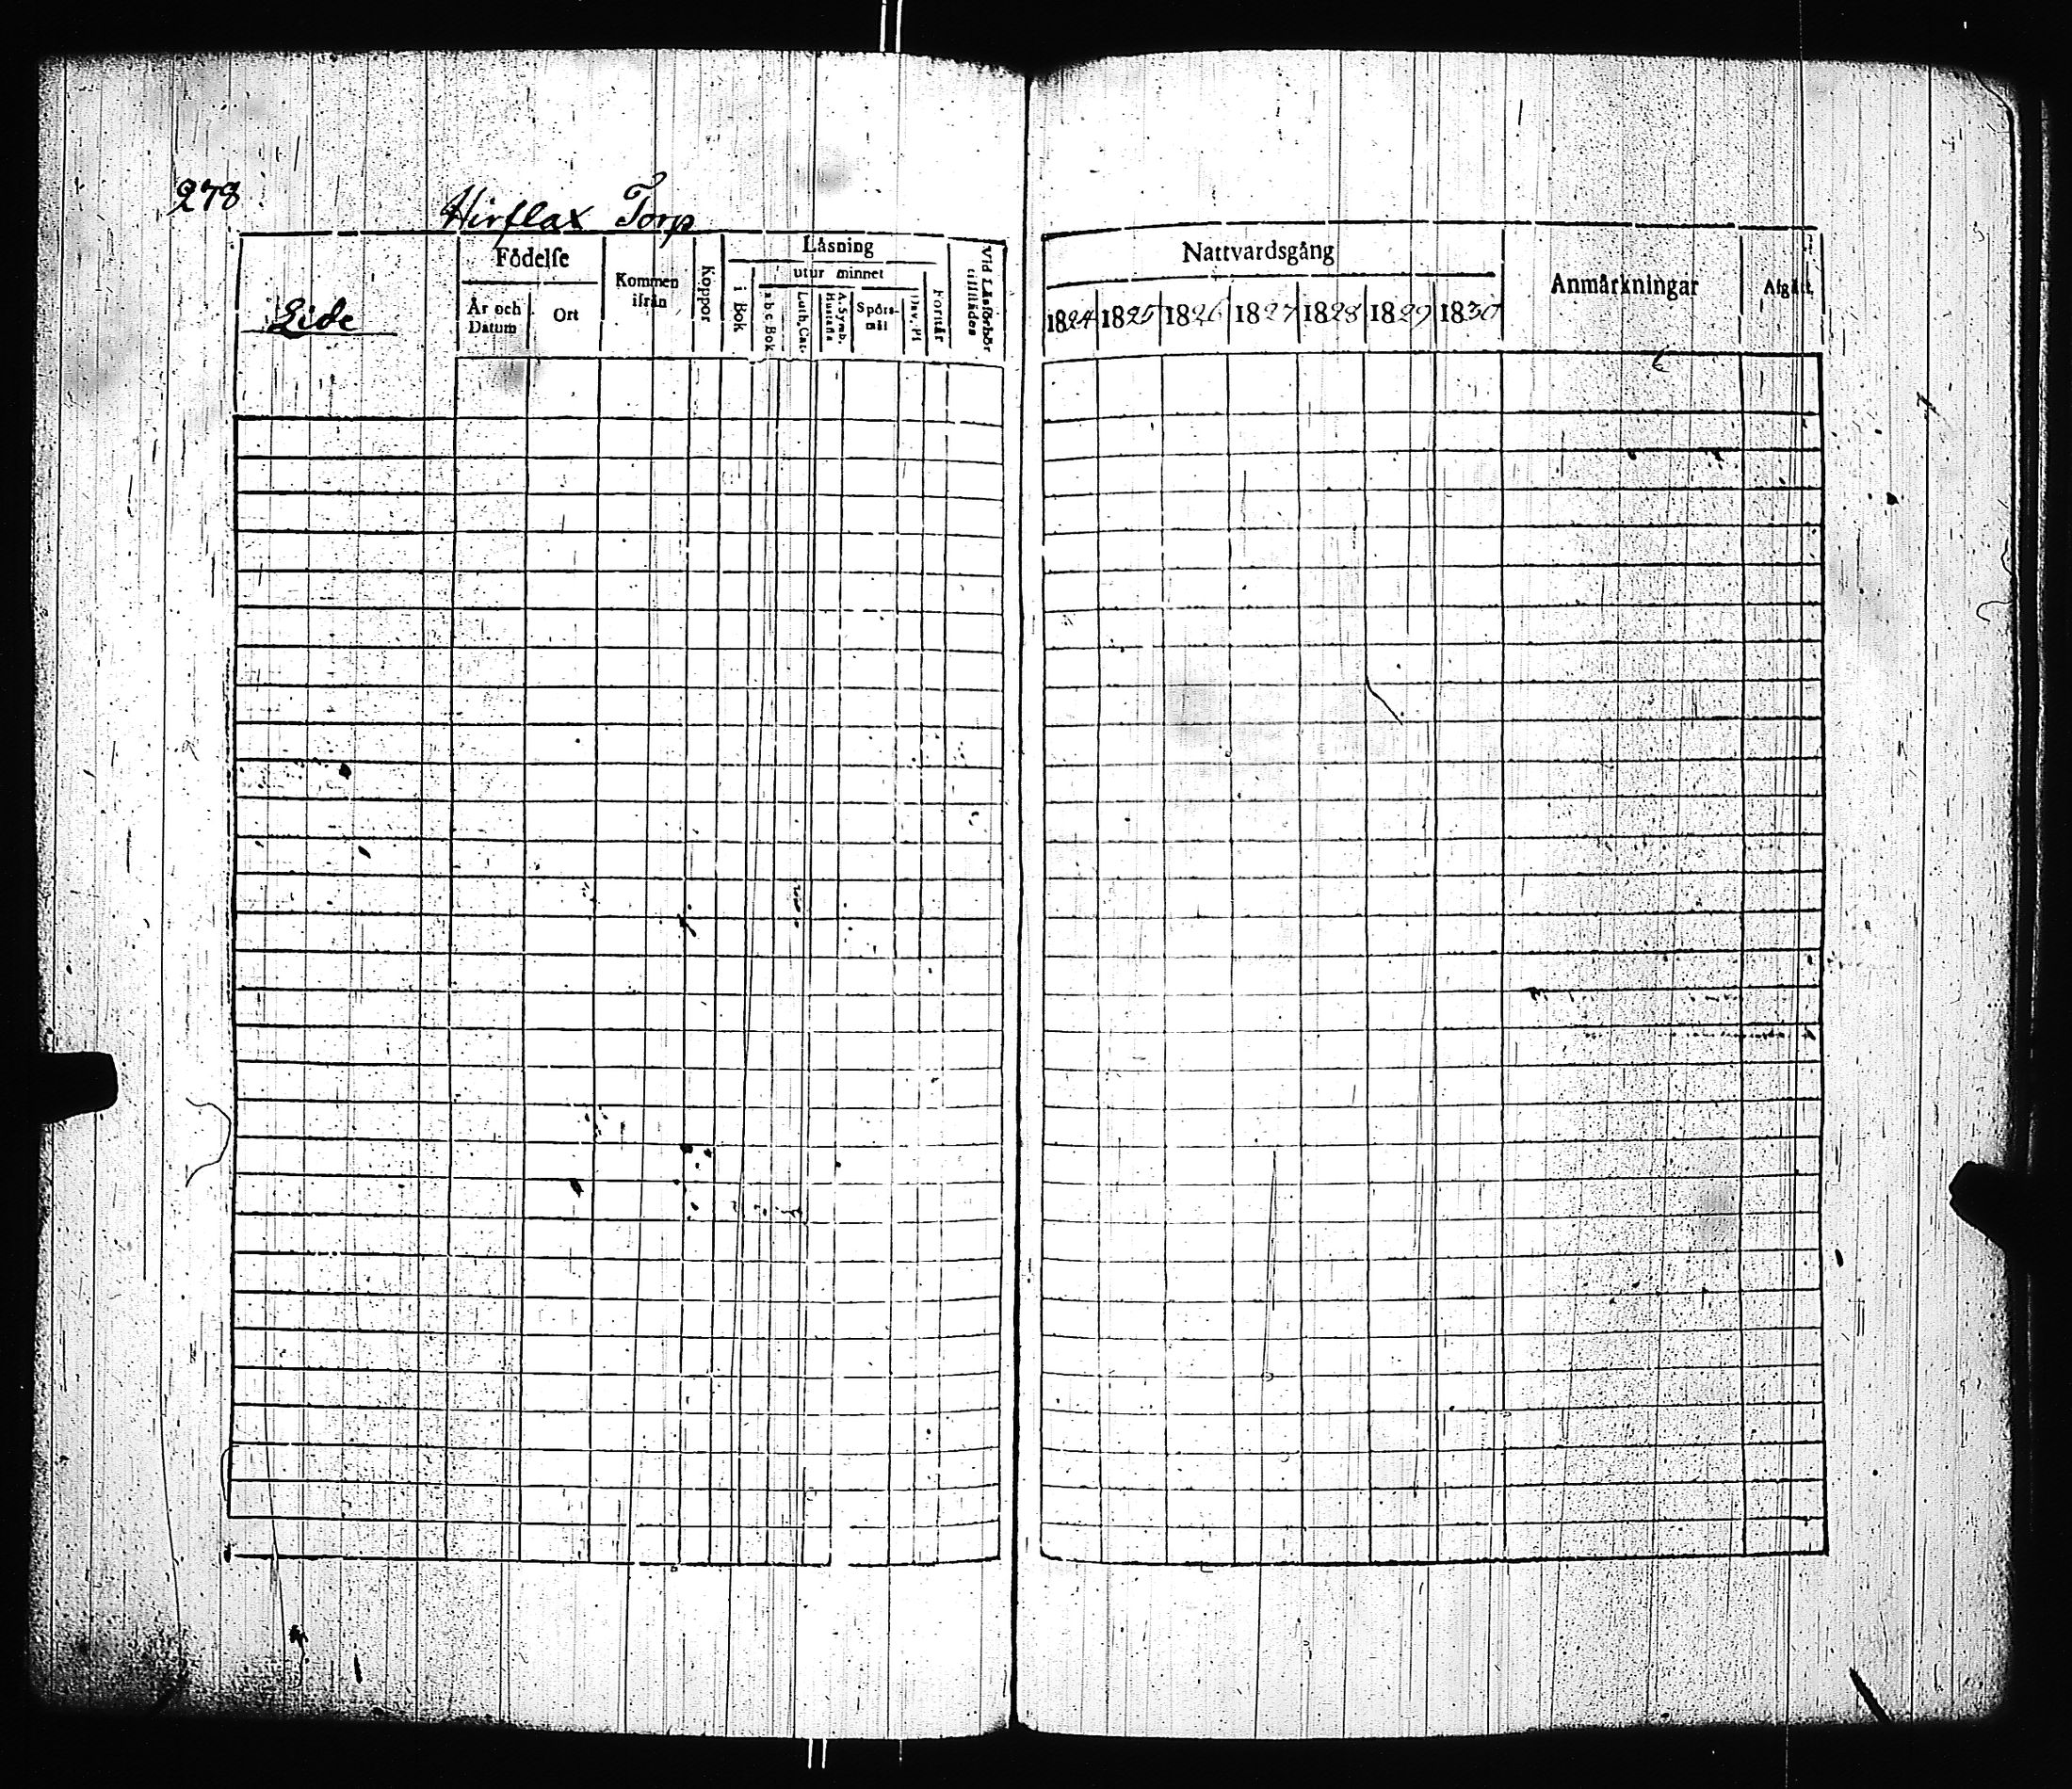 278
Hirflax Torp
Lide
Födelse
År och Datum
Ort
Kommen ifrån
Koppor
Läsning
i Bok
utur minnet
a b c Bok
Luth. Cat.
A. Symb.
Hustafla
Spörs-mål
Dav. Ps
Förstår
Vid Läsförhör tillstädes
Nattvardsgång
1824 1825 1826 1827 1828 1829 1830
Anmärkningar
Afgått.